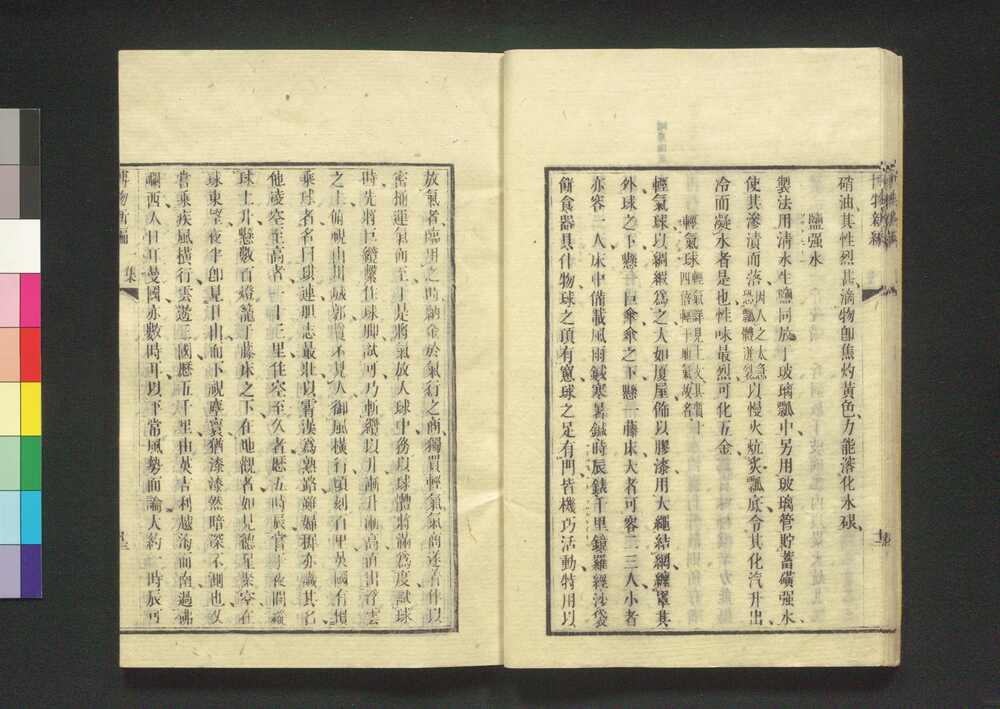 硝油其性烈甚滴物即焦灼黃色力能溶化水銀
鹽强水
製法用清水生鹽同放于玻璃瓢中另用玻璃管貯蓄磺强水
使其滲漬而落以慢火炕炙瓢底令其化汽升出
冷而凝水者是也性味最烈可化五金
輕氣球
輕氣球以綢緞爲之大如厦屋飾以膠漆用大繩結網纏罩其
外球之下懸一巨傘傘之下懸一藤床大者可容二三人小者
亦容一人床中備載風雨鍼寒暑鍼時辰錶千里鏡羅經沙袋
餅食器具什物球之頂有窻球之足有門皆機巧活動特用以
放氣者臨用之時納金於氣行之商獨買輕氣氣商遂著伴以
密桶運氣而至于是將氣放入球中務以球體將滿爲度試球
時先將巨纜繫住球脚試可乃斬纜以升漸升漸高直出浮雲
之上俯視山川城郭買不見人御風橫行頃刻百里英國有慣
乘球者名曰球連胆志最壯以霄漢爲熟路雖婦孺亦識其名
他凌空至高者二十三里住空至久者歷五時辰官于夜間繞
球上升懸數百燈籠于藤床之下在地觀者如見德星聚空在
球東望夜半即見日出而下視塵寰猶漆漆然暗深不測也又
嘗乘疾風橫行雲邊三國歷五千里由英吉利越海而南過佛
囒西入日耳曼國亦數時耳以平常風勢而論大約一時辰可
博物新編
一集